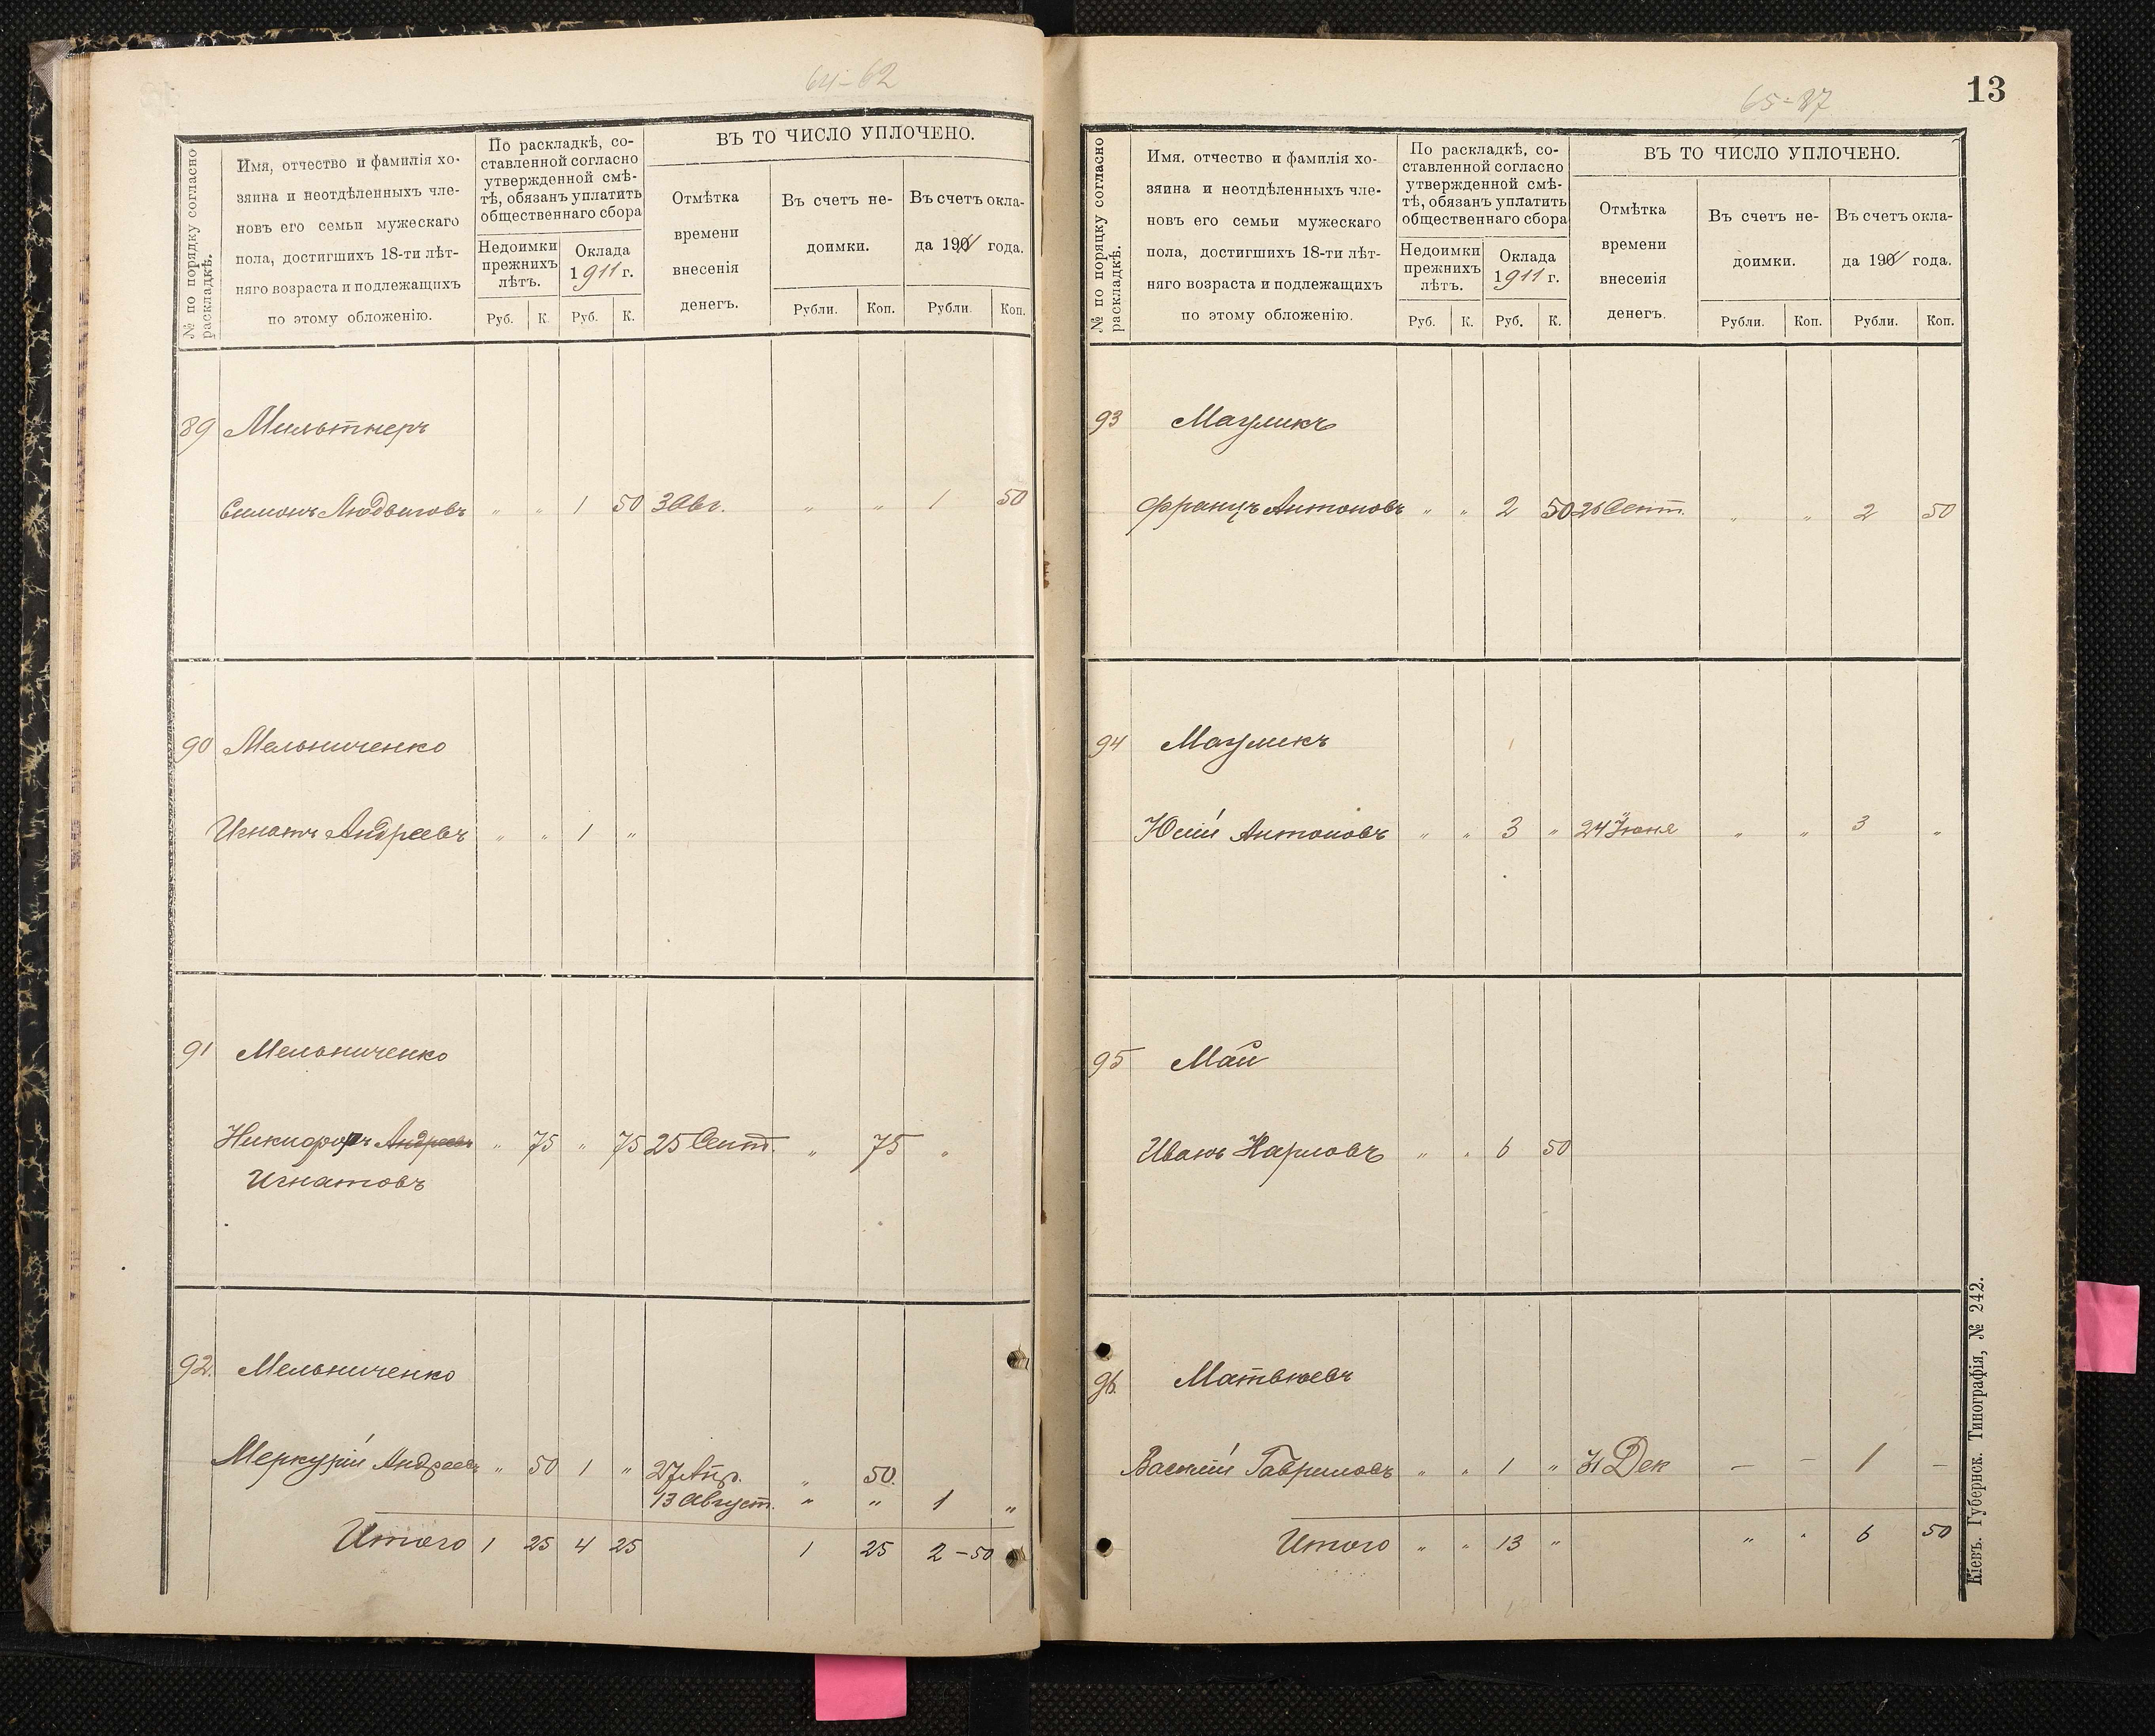 64-62
№ по порядку согласно раскладкѣ.
Имя, отчество и фамилія хо-
зяина и неотдѣленныхъ чле-
новъ его семьи мужескаго
пола, достигшихъ 18-ти лѣт-
няго возраста и подлежащихъ
по этому обложенію.
По раскладкѣ, со-
ставленной согласно
утвержденной смѣ-
тѣ, обязанъ уплатить
общественнаго сбора
Недоимки
прежнихъ
лѣтъ.
Оклада
1911 г.
Руб. К. Руб. К.
ВЪ ТО ЧИСЛО УПЛОЧЕНО.
Отмѣтка
времени
внесенія
денегъ.
Въ счетъ не-
доимки.
Въ счетъ окла-
да 1911 года.
Рубли. Коп. Рубли. Коп.
89 Мильтнеръ
Симонъ Людвиговъ " " 1 50 3 Авг. " " 1 50
90 Мельниченко
Игнатъ Андреевъ " " 1 "
91 Мельниченко
Никифоръ Андреевъ " 75 " 75 25 Сент. " 75 "
Игнатовъ
92. Мельниченко
Меркурій Андреевъ " 50 1 " 27 Апр. " 50
13 Август. " " 1 "
Итого 1 25 4 25 1 25 2 - 50
13
№ по порядку согласно раскладкѣ.
Имя, отчество и фамилія хо-
зяина и неотдѣленныхъ чле-
новъ его семьи мужескаго
пола, достигшихъ 18-ти лѣт-
няго возраста и подлежащихъ
по этому обложенію.
По раскладкѣ, со-
ставленной согласно
утвержденной смѣ-
тѣ, обязанъ уплатить
общественнаго сбора
Недоимки
прежнихъ
лѣтъ.
Оклада
1911 г.
Руб. К. Руб. К.
ВЪ ТО ЧИСЛО УПЛОЧЕНО.
Отмѣтка
времени
внесенія
денегъ.
Въ счетъ не-
доимки.
Въ счетъ окла-
да 1911 года.
Рубли. Коп. Рубли. Коп.
93 Мазуликъ
Францъ Антоновъ " " 2 50 26 Сент. " " 2 50
94 Мазуликъ
Юлій Антоновъ " " 3 " 24 Іюня " " 3 "
95 Май
Иванъ Карловъ " " 6 50
96. Матвюевъ
Василій Гавриловъ " " 1 " 31 Дек — – 1 –
Итого " " 13 " " " 6 50
Кіевъ. Губернск. Типографія, № 242.